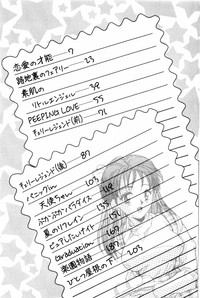 恋愛の才能 7
路地裏のフェアリー 23
素肌の
リトルエンジェル 39
PEEPING LOVE 55
チェリーレジェンド(前) 71
チェリーレジェンド(後) 87
パニックin 103
天使ちゃん 119
ぷかぷかパラダイス 135
夏のリフレイン 151
ピュアしたいナイト 167
Graduation 187
楽園物語
ひとつ屋根の下 203